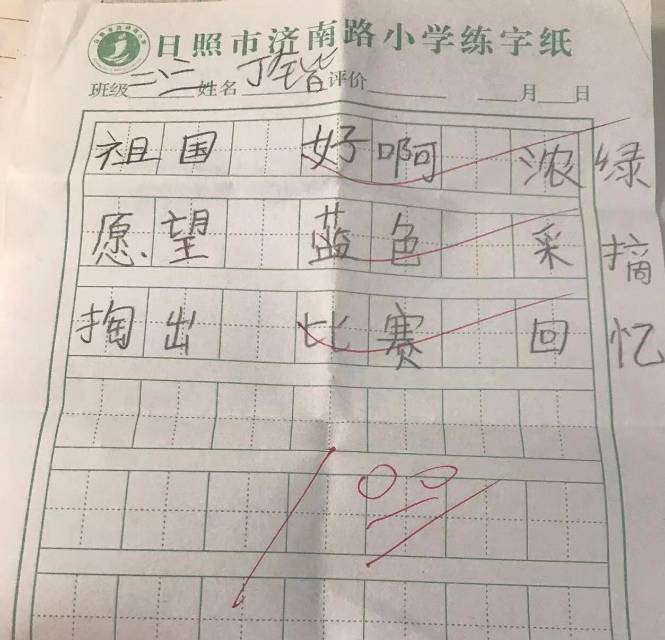 日照市济南路小学练字纸
班级 二、二 姓名 丁锴 评价 月 日
祖国 好啊 浓绿
愿望 蓝色 采摘
掏出 比赛 回忆
100